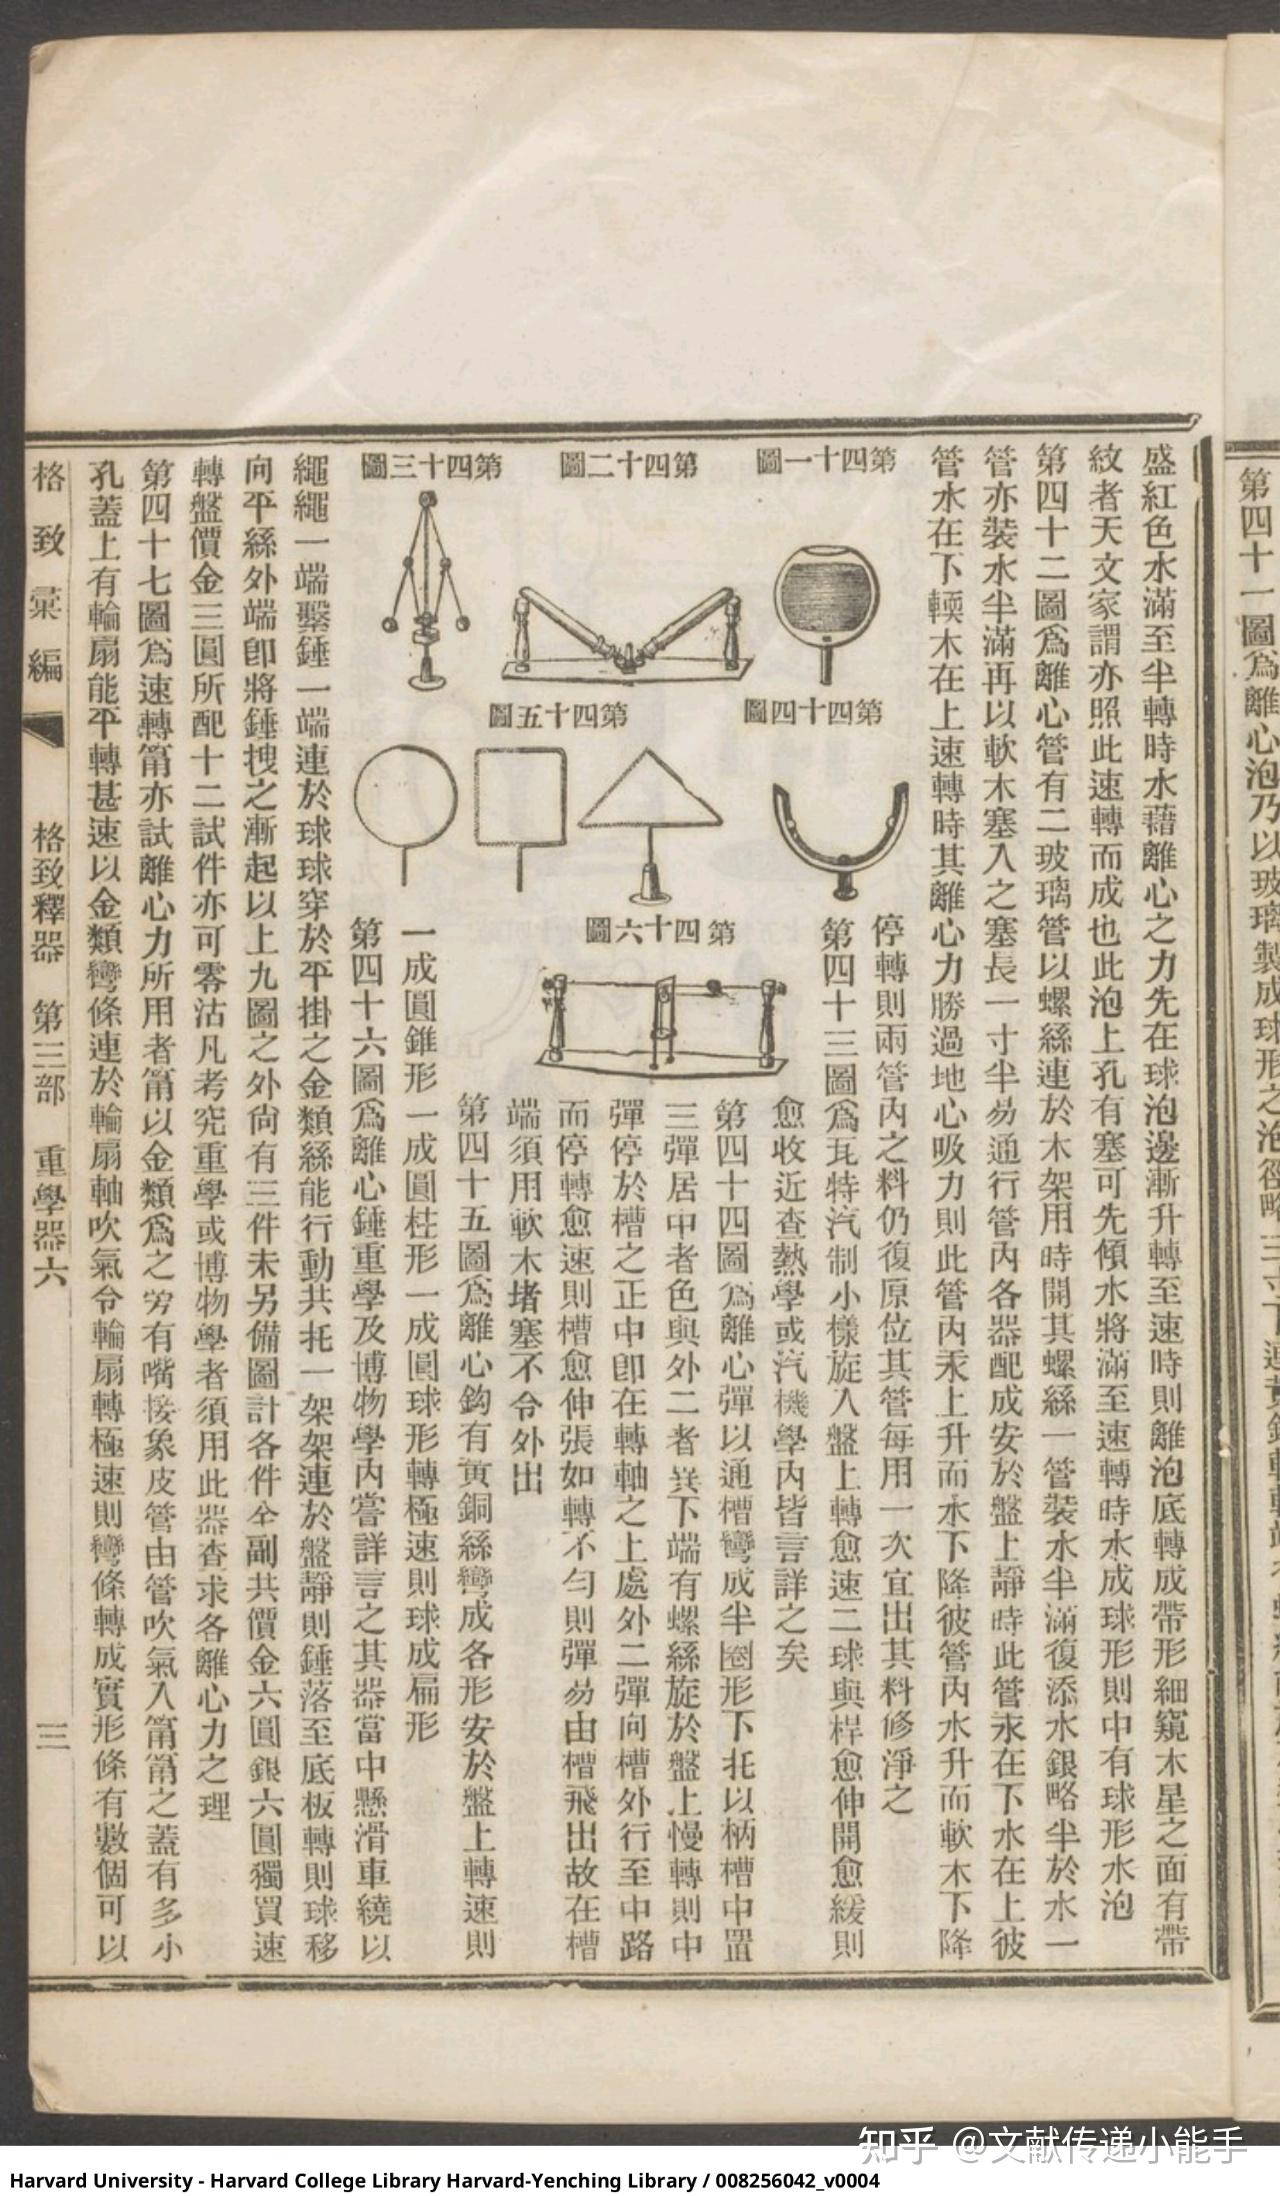 第四十一圖爲離心泡乃以玻璃製成球形之泡徑略三寸下連黃銅
盛紅色水滿至半轉時水藉離心之力先在球泡邊漸升轉至速時則離泡底轉成帶形細窺木星之面有帶
紋者天文家謂亦照此速轉而成也此泡上孔有塞可先傾水將滿至速轉時水成球形則中有球形水泡
第四十二圖爲離心管有二玻璃管以螺絲連於木架用時開其螺絲一管裝水半滿復添水銀略半於水一
管亦裝水半滿再以軟木塞入之塞長一寸半易通行管內各器配成安於盤上靜時此管汞在下水在上彼
管水在下輭木在上速轉時其離心力勝過地心吸力則此管內汞上升而水下降彼管內水升而軟木下降
停轉則兩管內之料仍復原位其管每用一次宜出其料修淨之
第四十三圖爲瓦特汽制小樣旋入盤上轉愈速二球與桿愈伸開愈緩則
愈收近查熱學或汽機學內皆言詳之矣
第四十四圖爲離心彈以通槽彎成半圈形下托以柄槽中置
三彈居中者色與外二者異下端有螺絲旋於盤上慢轉則中
彈停於槽之正中卽在轉軸之上處外二彈向槽外行至中路
而停轉愈速則槽愈伸張如轉不勻則彈易由槽飛出故在槽
端須用軟木堵塞不令外出
第四十五圖爲離心鈎有黃銅絲彎成各形安於盤上轉速則
一成圓錐形一成圓柱形一成圓球形轉極速則球成扁形
第四十六圖爲離心錘重學及博物學內嘗詳言之其器當中懸滑車繞以
繩繩一端繫錘一端連於球球穿於平掛之金類絲能行動共托一架架連於盤靜則錘落至底板轉則球移
向平絲外端卽將錘拽之漸起以上九圖之外尙有三件未另備圖計各件全副共價金六圓銀六圓獨買速
轉盤價金三圓所配十二試件亦可零沽凡考究重學或博物學者須用此器查求各離心力之理
第四十七圖爲速轉筩亦試離心力所用者筩以金類爲之旁有嘴接象皮管由管吹氣入筩筩之蓋有多小
孔蓋上有輪扇能平轉甚速以金類彎條連於輪扇軸吹氣令輪扇轉極速則彎條轉成實形條有數個可以
第四十一圖
第四十二圖
第四十三圖
第四十四圖
第四十五圖
第四十六圖
格致彙編
格致釋器 第三部 重學器六
三
知乎 @文献传递小能手
Harvard University - Harvard College Library Harvard-Yenching Library / 008256042_v0004